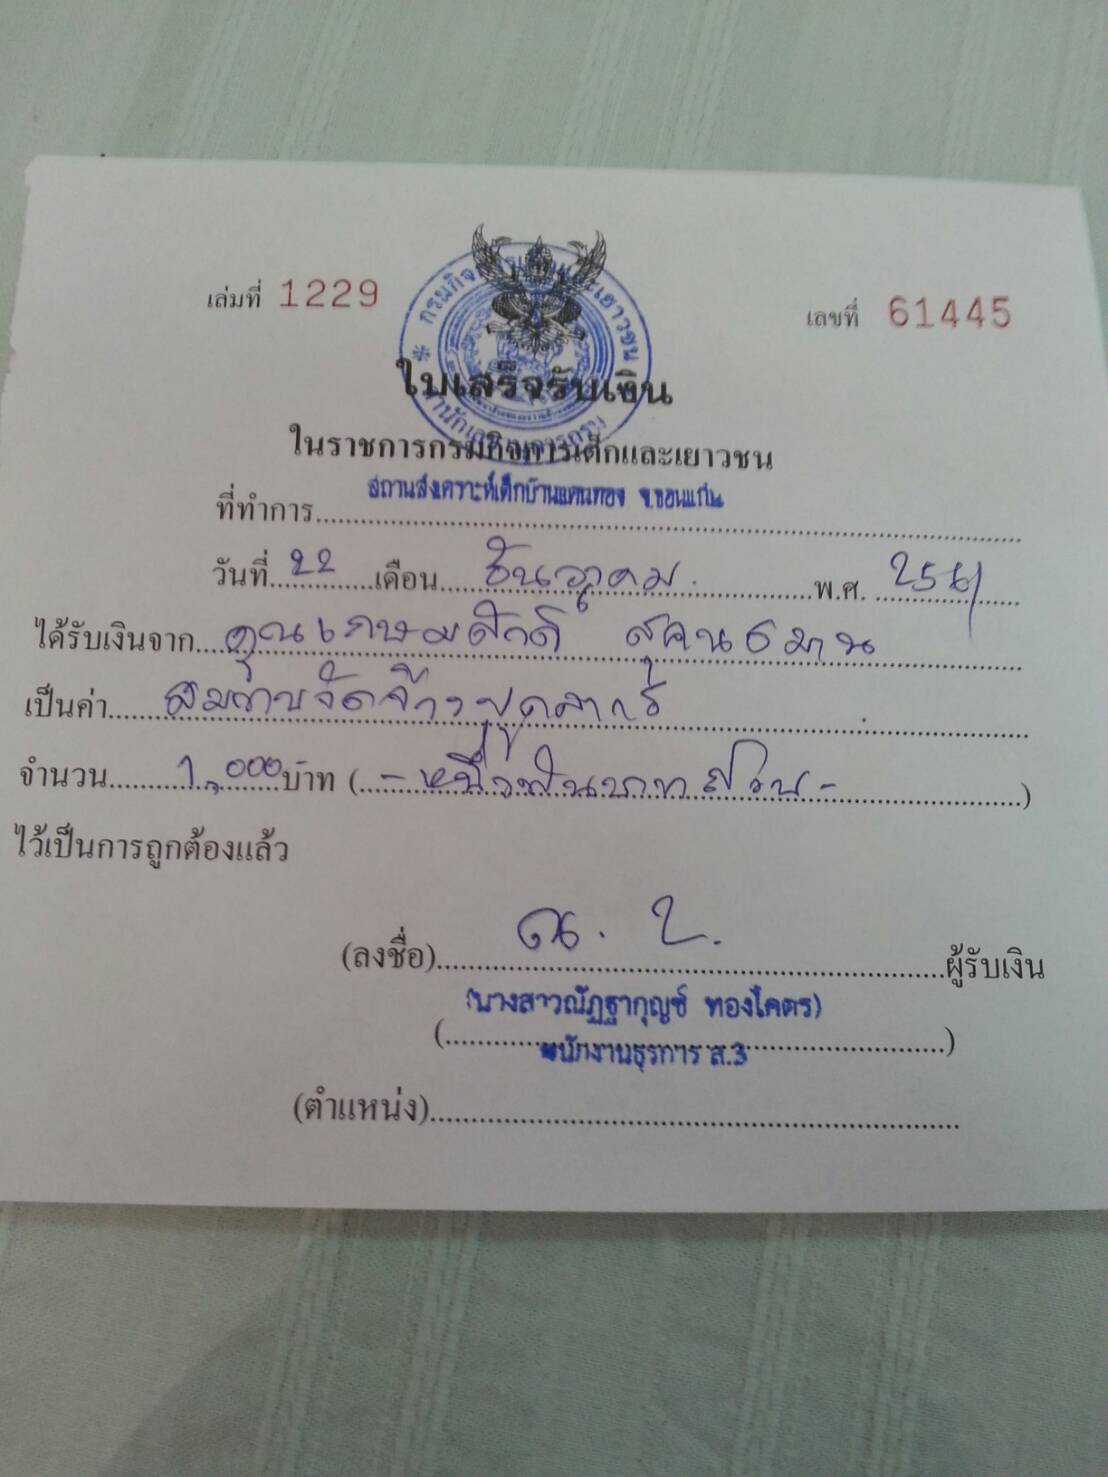 เล่มที่ 1229 เลขที่ 61445
กรมกิจการเด็กและเยาวชน
ใบเสร็จรับเงิน
ในราชการกรมกิจการเด็กและเยาวชน
ที่ทำการ สถานสงเคราะห์เด็กบ้านแคนทอง จ.ขอนแก่น
วันที่ 22 เดือน ธันวาคม พ.ศ. 2561
ได้รับเงินจาก คุณเกษมศักดิ์ สุคนธมาน
เป็นค่า สมทบจัดจ้างบุคลากร
จำนวน 1,000 บาท (-หนึ่งพันบาทถ้วน-)
ไว้เป็นการถูกต้องแล้ว
(ลงชื่อ) ผู้รับเงิน
(นางสาวณัฏฐากุญช์ ทองโคตร)
พนักงานธุรการ ส.3
(ตำแหน่ง)